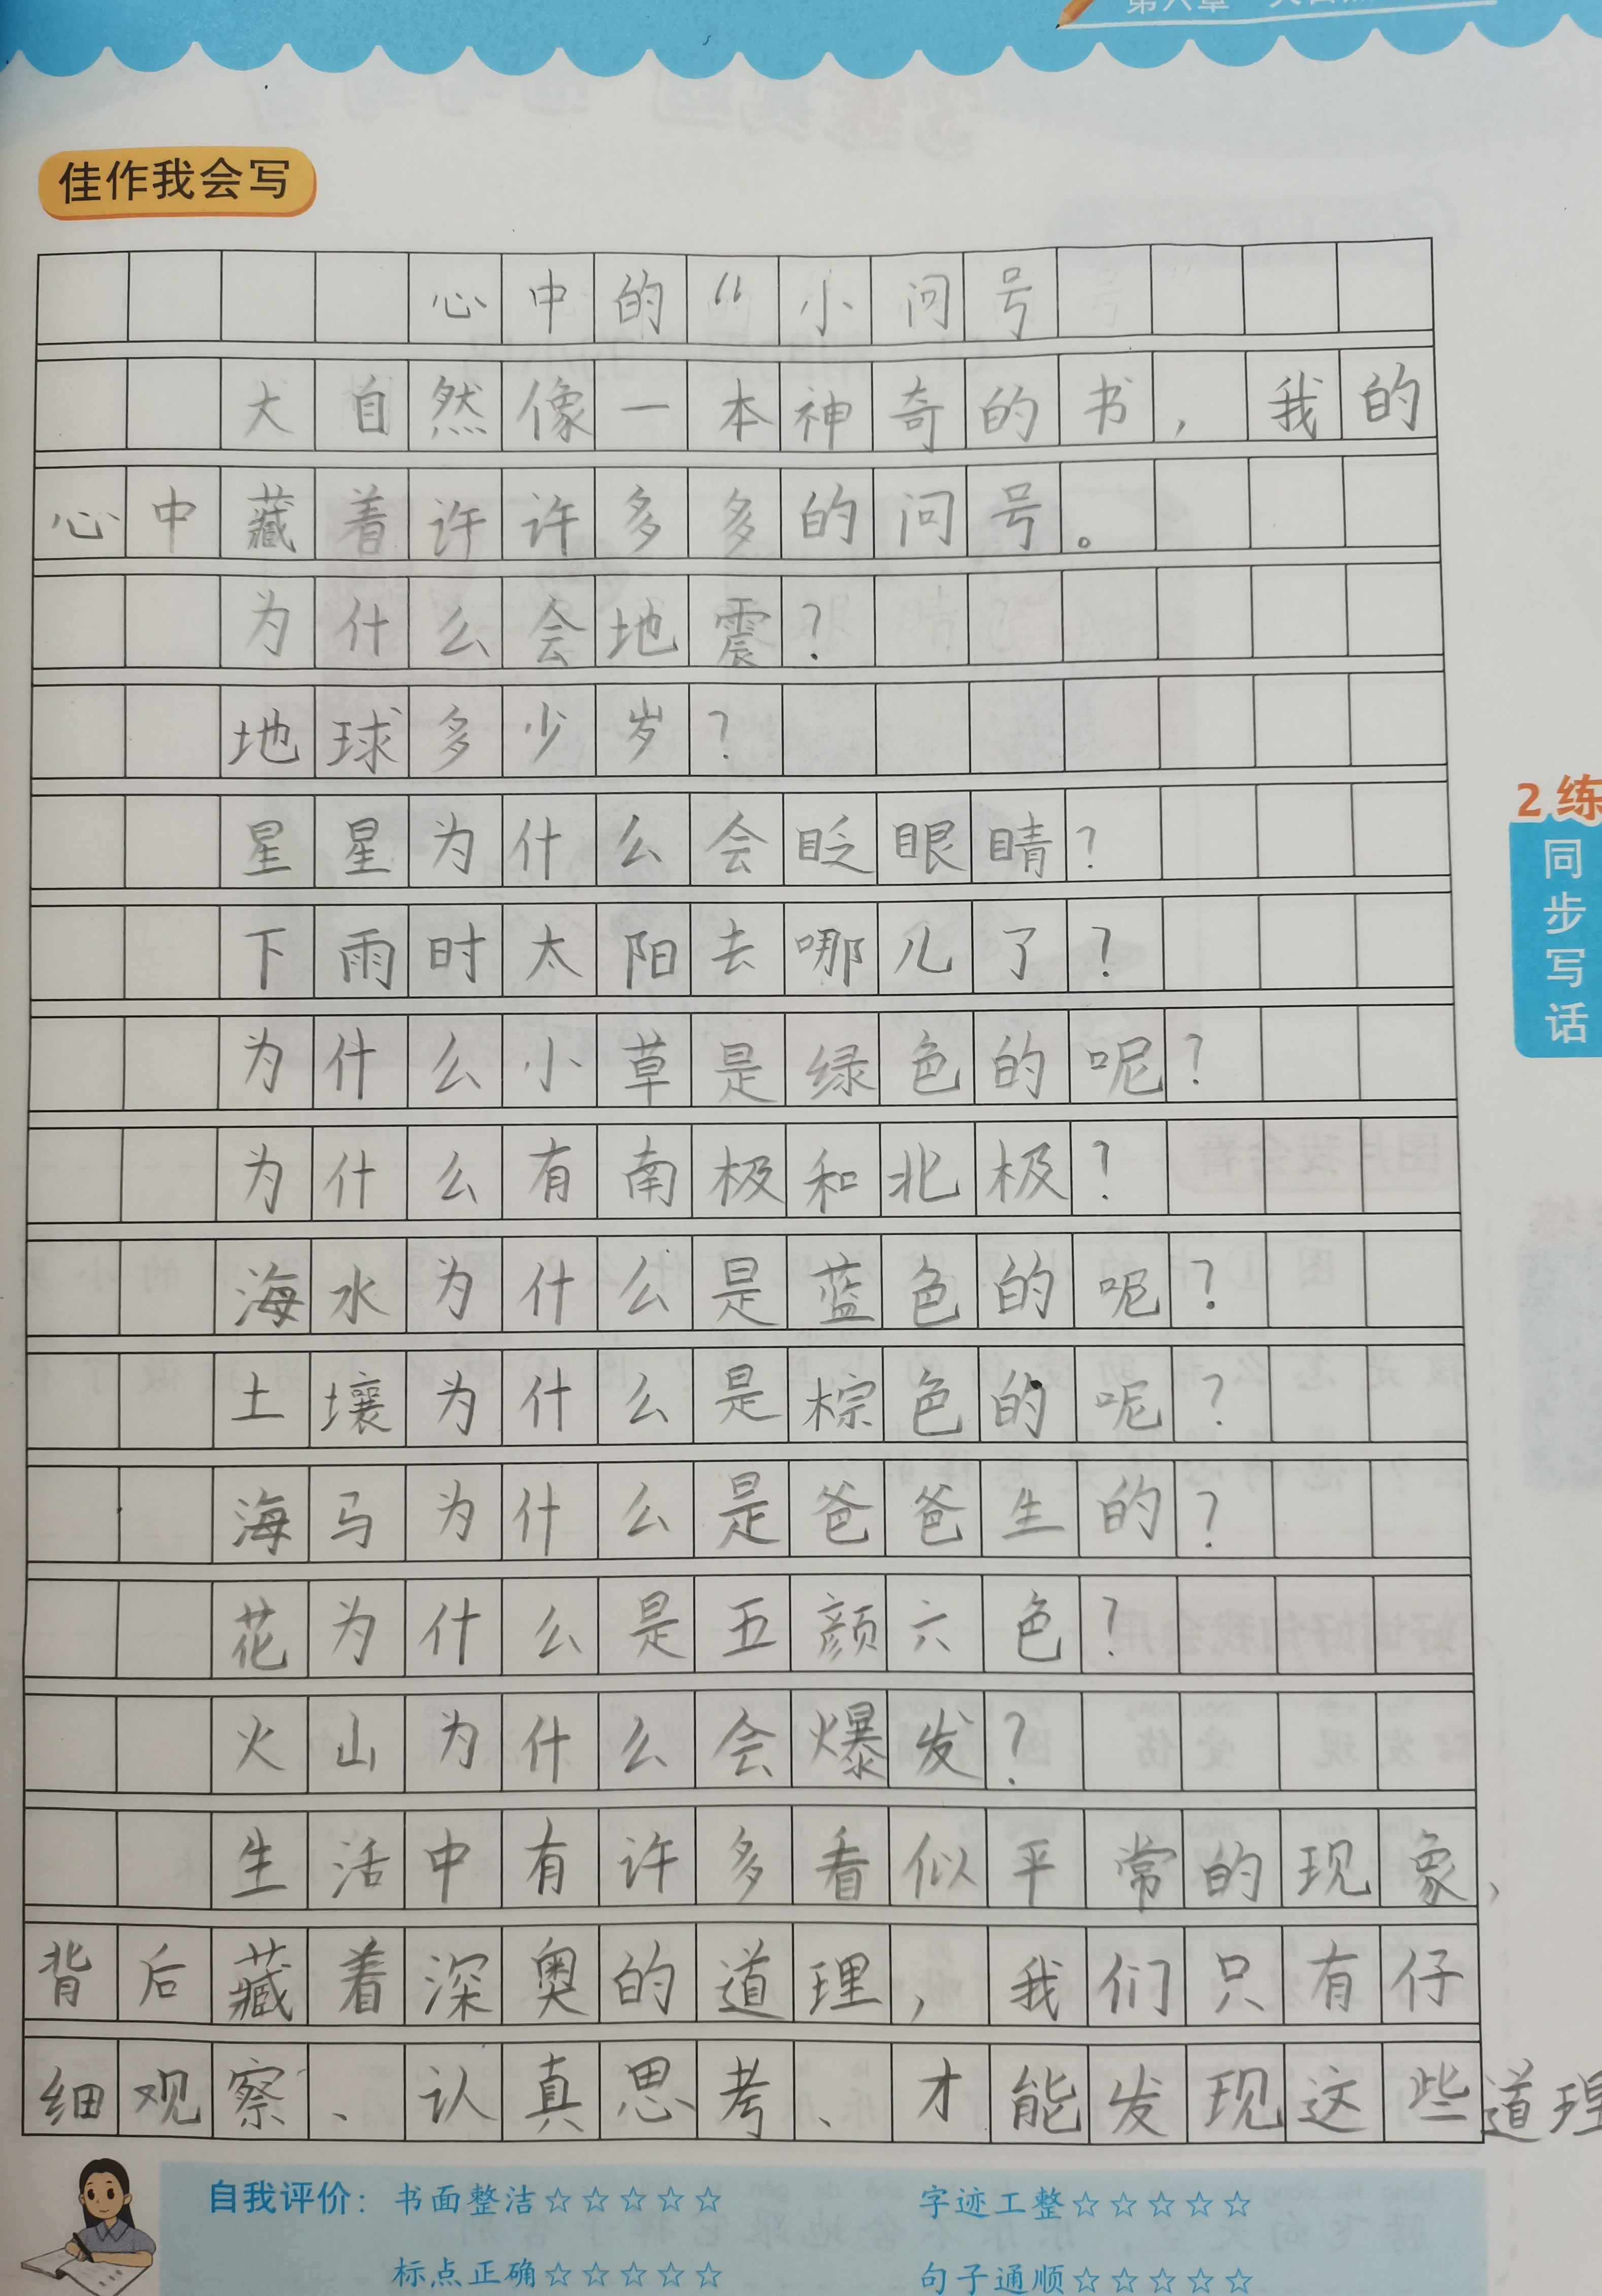 佳作我会写
心中的“小问号
大自然像一本神奇的书，我的
心中藏着许许多多的问号。
为什么会地震？
地球多少岁？
星星为什么会眨眼睛？
下雨时太阳去哪儿了？
为什么小草是绿色的呢？
为什么有南极和北极？
海水为什么是蓝色的呢？
土壤为什么是棕色的呢？
海马为什么是爸爸生的？
花为什么是五颜六色？
火山为什么会爆发？
生活中有许多看似平常的现象，
背后藏着深奥的道理，我们只有仔
细观察、认真思考、才能发现这些道理
2练
同步写话
自我评价：书面整洁☆☆☆☆☆ 字迹工整☆☆☆☆☆
标点正确☆☆☆☆☆ 句子通顺☆☆☆☆☆